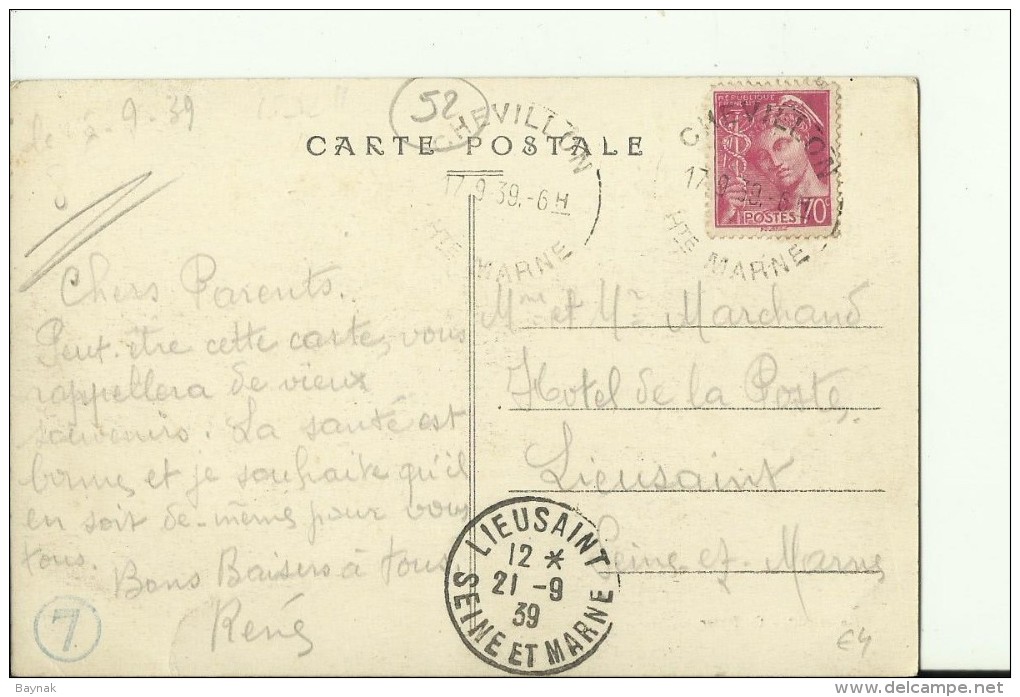 le 2-9-39
52
CARTE POSTALE
CHEVILLON
17.9 39.-6H
HTE MARNE
RÉPUBLIQUE
FRANÇAISE
POSTES 70c
CHEVILLON
17.9.39.-6H
HTE MARNE
Chers Parents.
Peut-être cette carte, vous
rappellera de vieux
souvenirs. La santé est
bonne, et je souhaite qu'il
en soit de-même pour vous
tous.
Bons Baisers à tous
René
7.
Mme et Mr Marchand
Hotel de la Poste,
Lieusaint
Seine et Marne
LIEUSAINT
12 *
21-9
39
SEINE ET MARNE
€4
Baynak
www.delcampe.net